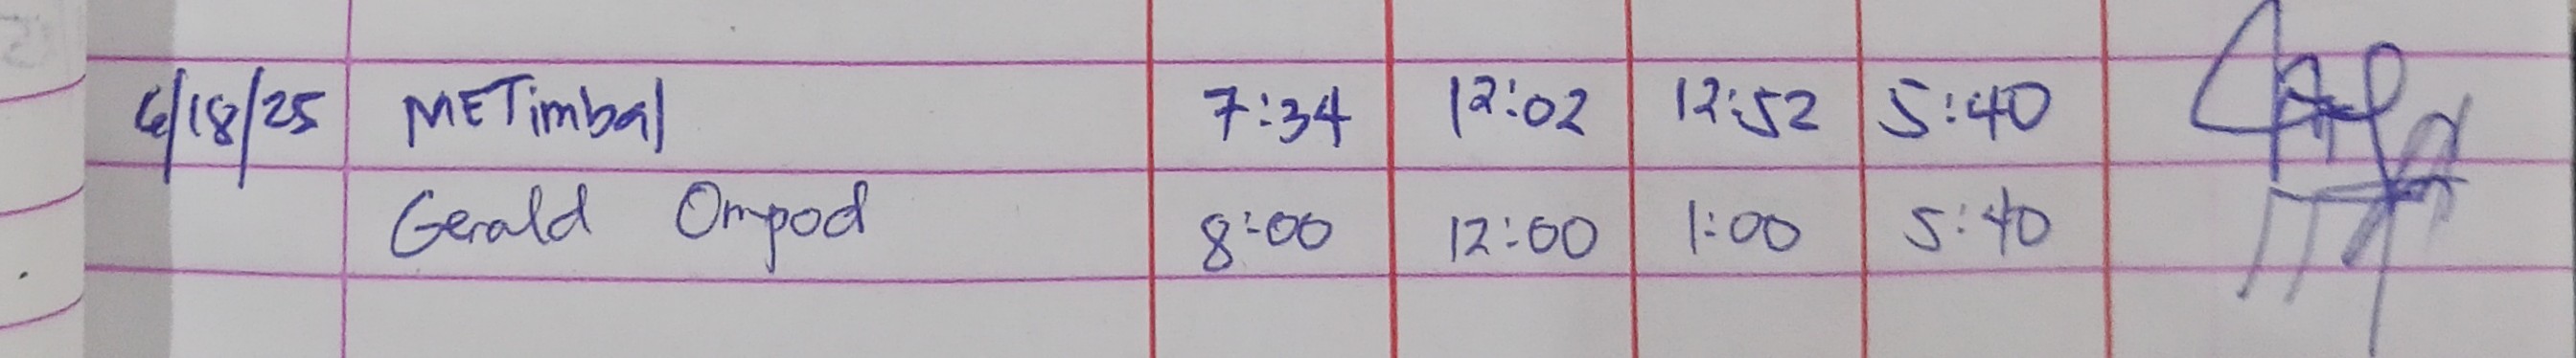 6/18/25 METimbal 7:34 12:02 12:52 5:40
Gerald Ompod 8:00 12:00 1:00 5:40